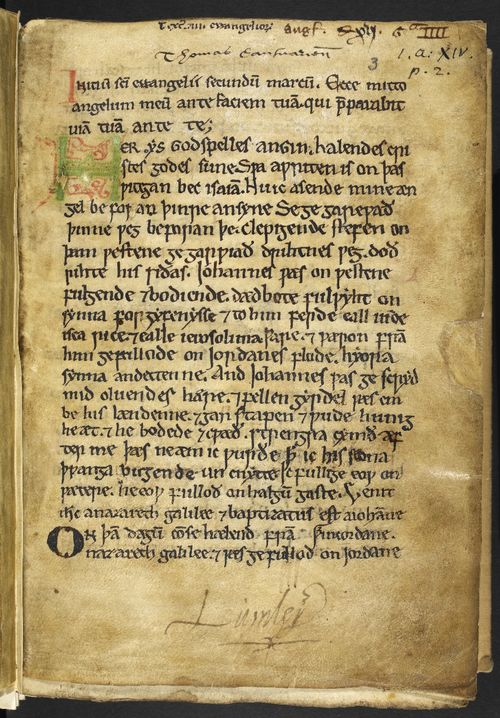 Thomas Cantuarien̄
3
1. A. XIV.
p. 2.
Iniciū scī ewangelii secundū marcū. Ecce mitto
angelum meū ante faciem tuā. qui p̄parabit
uiā tuā ante te;
HER ys Godspelles angin. halendes cri
stes godes sune. Swa awriten is on þas
witegan bec isaiā. Nu ic asende mine æn
gel be for an þinre ansyne Se ge garewað
þinne weg beforan þe. Clepigende stefen on
þam westene ge garwiað drihtnes weg. doð
rihte his siðas. Iohannes wæs on westene
fulgende ⁊ bodiende. dædbote fulwyht on
synna forgyfenysse ⁊ to him ferde eall iude
isca rice ⁊ ealle ierosolima ware. ⁊ waron frā
him gefullode on iordanes flode. hyora
synna andettenne. And iohannes wæs ge scryd
mid oluendes hære. ⁊ fellen gyrdel wæs em
be his lændenne. ⁊ garstapen ⁊ wude hunig
he æt. ⁊ he bodede ⁊ cwæð. strengra cymð æf
ter me þæs ne æm ic wurðe þ̄ ic his scona
þwanga bugende un cnytte. Ic fullige eow on
wætere. he eow fulloð on halgū gaste. Et uenit
ihc a nazareth galilee ⁊ baptizatus est a iohāne
On þā dagū cōse hælend frā in iordane.
nazareth galilee. ⁊ wæs ge fullod on iordane
Lumley